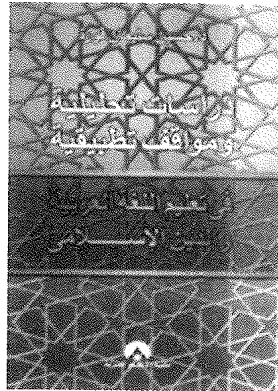 دراسات تحليلية
ومواقف تطبيقية
في تعليم اللغة العربية
والدين الإسلامى